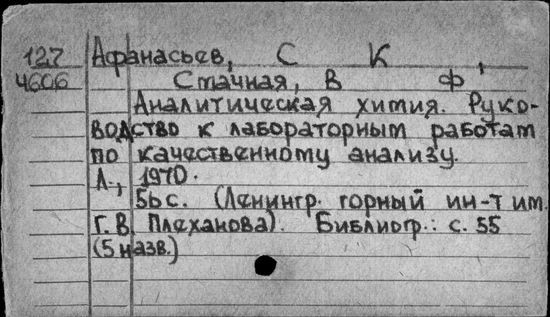 127 Афанасьев, С К ,
4606 Стачная, В Ф
Аналитическая химия. Руко-
водство к лабораторным работам
по качественному анализу.
Л., 1970.
56 с. (Ленингр. горный ин-т им.
Г. В. Плеханова). Библиогр.: с. 55
(5 назв.)